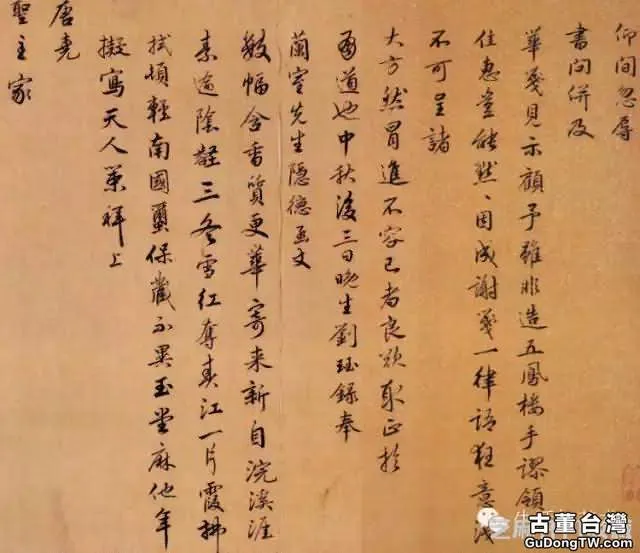 仰間忽辱
書問併及
華箋見示顧予雖非造五鳳樓手謬領
佳惠豈能默〻因成謝箋一律語狂意淺
不可呈諸
大方然冒進不容已者良欲取正於
有道也中秋後三日晚生劉珏錄奉
蘭室先生隱德函丈
數幅含香質更華寄來新自浣溪涯
素逾陰壑三冬雪紅奪春江一片霞拂
拭頓輕南國繭保藏不異玉堂麻他年
擬寫天人策拜上
唐堯
聖主家
古董台灣
GuDongTW.com